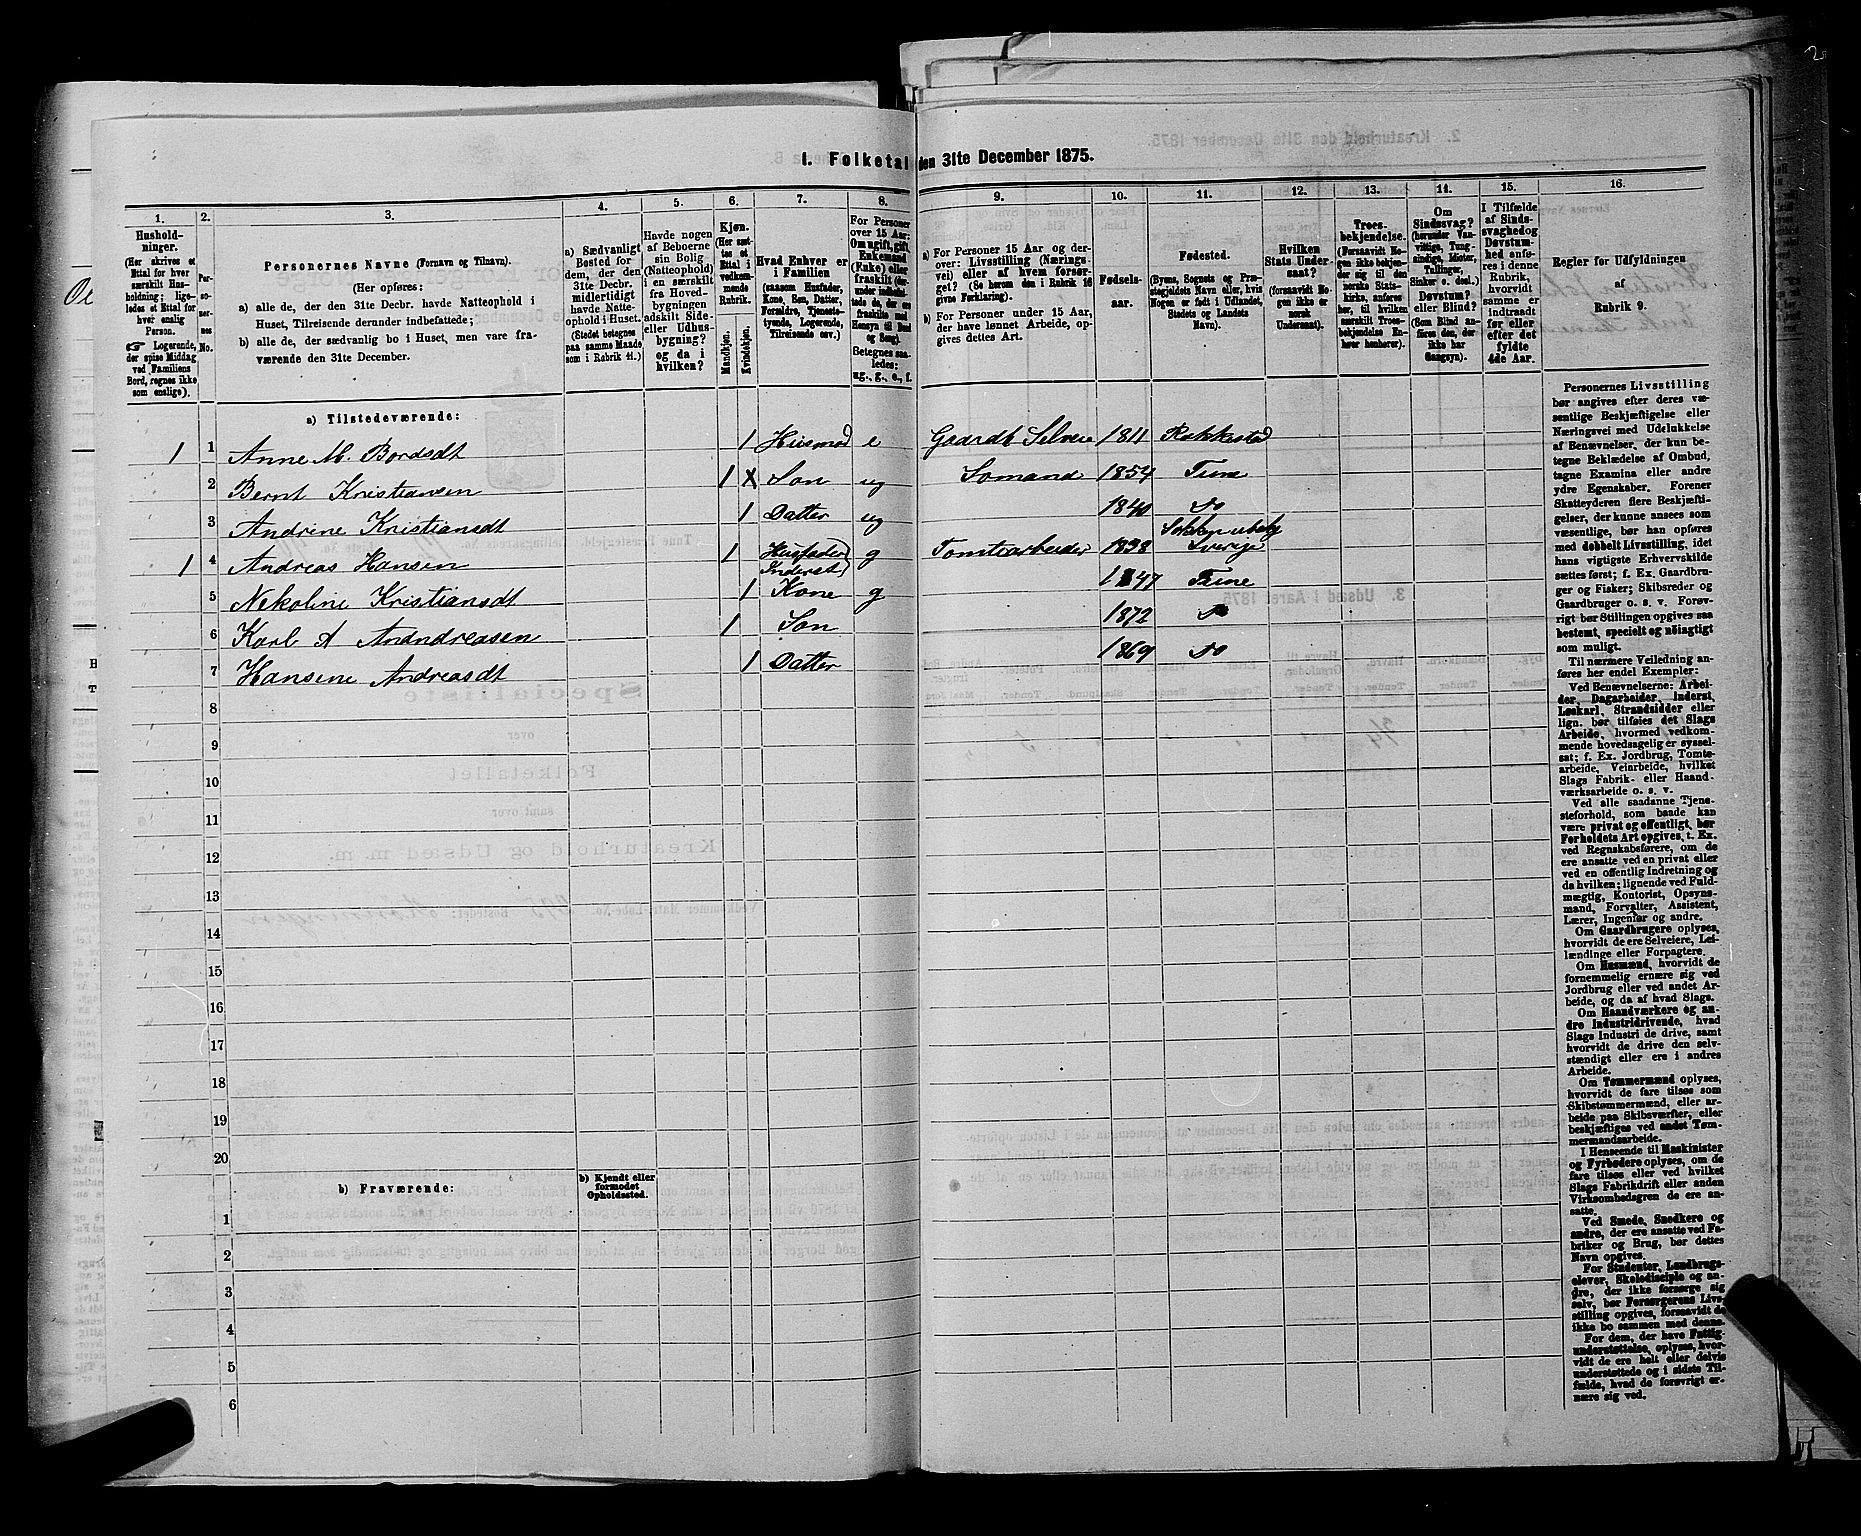 1. Folketal den 31te December 1875.
1. 2. 3. 4. 5. 6. 7. 8. 9. 10. 11. 12. 13. 14. 15. 16.
Hushold-
ninger.
(Her skrives et
Ettal for hver
særskilt Hus-
holdning; lige-
ledes et Ettal for
hver enslig
Person.
☞ Logerende,
der spise Middag
ved Familiens
Bord, regnes ikke
som enslige).
Per-
so-
ner-
nes
No.
Personernes Navne (Fornavn og Tilnavn).
(Her opføres:
a) alle de, der den 31te Decbr. havde Natteophold i
Huset, Tilreisende derunder indbefattede;
b) alle de, der sædvanlig bo i Huset, men vare fra-
værende den 31te December.
a) Sædvanligt
Bosted for
dem, der den
31te Decbr.
midlertidigt
havde Natte-
ophold i Huset.
(Stedet betegnes
paa samme Maade
som i Rubrik 11.)
Havde nogen
af Beboerne
sin Bolig
(Natteophold)
i en særskilt
fra Hoved-
bygningen
adskilt Side-
eller Udhus-
bygning?
og da i
hvilken?
Kjøn.
(Her sæt-
tes et
Ettal i
vedkom-
mende
Rubrik.
Mandkjøn.
Kvindekjøn.
Hvad Enhver er
i Familien
(saasom Husfader,
Kone, Søn, Datter,
Forældre, Tjeneste-
tyende, Logerende,
Tilreisende osv.)
For Personer
over 15 Aar:
Om ugift, gift,
Enkemand
(Enke) eller
fraskilt (der-
under indbefat-
tede de, der ere
fraskilte med
Hensyn til Bord
og Seng).
Betegnes saa-
ledes:
ug., g., e., f.
a) For Personer 15 Aar og der-
over: Livsstilling (Nærings-
vei) eller af hvem forsør-
get? (Se herom den i Rubrik 16
givne Forklaring).
b) For Personer under 15 Aar,
der have lønnet Arbeide, op-
gives dettes Art.
Fødsels-
aar.
Fødested.
(Byens, Sognets og Præ-
stegjeldets Navn eller, hvis
Nogen er født i Udlandet,
Stedets og Landets
Navn).
Hvilken
Stats Under-
saat?
(forsaavidt No-
gen ikke er
norsk
Undersaat).
Troes-
bekjendelse.
(Forsaavidt No-
gen ikke bekjen-
der sig til den
norske Stats-
kirke, anføres
her, til hvilken
særskilt Troes-
bekjendelse En-
hver henhører).
Om
Sindssvag?
(herunder Van-
vittige, Tung-
sindige, Idioter,
Tullinger,
Sinker o. desl.)
Døvstum?
eller Blind?
(Som Blind an-
føres den, der
ikke har
Gangsyn).
I Tilfælde
af Sinds-
svaghed og
Døvstum-
hed anfø-
res i denne
Rubrik,
hvorvidt
samme er
indtraadt
før eller
efter det
fyldte
4de Aar.
Regler for Udfyldningen
af
Rubrik 9.
a) Tilstedeværende:
1 1 Anne M. Bordsdt 1 Husmod e Gaardb Selveier 1811 Rakkestad
2 Bernt Kristiansen 1 X Søn ug Sømand 1854 Tune
3 Andrine Kristiansdt 1 Datter ug 1840 Do
1 4 Andreas Hansen 1 Husfader Inderst g Tomtearbeider 1838 Sverige
5 Nekoline Kristiansdt 1 Kone g 1847 Tune
6 Karl A Andndreasen 1 Søn 1872 Do
7 Hansine Andreasdt 1 Datter 1869 Do
8
9
10
11
12
13
14
15
16
17
18
19
20
b) Fraværende:
b) Kjendt eller
formodet
Opholdssted.
1
2
3
4
5
6
Personernes Livsstilling
bør angives efter deres væ-
sentlige Beskjæftigelse eller
Næringsvei med Udelukkelse
af Benævnelser, der kun be-
tegne Beklædelse af Ombud,
tagne Examina eller andre
ydre Egenskaber. Forener
Skatteyderen flere Beskjæfti-
gelser, der kunne ansees som
væsentlige, bør han opføres
med dobbelt Livsstilling, idet
hans vigtigste Erhvervskilde
sættes først; f. Ex. Gaardbru-
ger og Fisker; Skibsreder og
Gaardbruger o. s. v. Forøv-
rigt bør Stillingen opgives saa
bestemt, specielt og nöiagtigt
som muligt.
Til nærmere Veiledning an-
føres her endel Exempler:
Ved Benævnelserne: Arbei-
der, Dagarbeider, Inderst,
Løskarl, Strandsidder eller
lign. bør tilføies det Slags
Arbeide, hvormed vedkom-
mende hovedsagelig er syssel-
sat; f. Ex. Jordbrug, Tomte-
arbeide, Veiarbeide, hvilket
Slags Fabrik- eller Haand-
værksarbeide o. s. v.
Ved alle saadanne Tjene-
steforhold, som baade kan
være privat og offentligt, bør
Forholdets Art opgives, t. Ex.
ved Regnskabsførere, om de
ere ansatte ved en privat eller
ved en offentlig Indretning og
da hvilken; lignende ved Fuld-
mægtig, Kontorist, Opsyns-
mand, Forvalter, Assistent,
Lærer, Ingeniør og andre.
Om Gaardbrugere oplyses,
hvorvidt de ere Selveiere, Lei-
lændinge eller Forpagtere.
Om Husmænd, hvorvidt de
fornemmelig ernære sig ved
Jordbrug eller ved andet Ar-
beide, og da af hvad Slags.
Om Haandværkere og an-
dre Industridrivende, hvad
Slags Industri de drive, samt
hvorvidt de drive den selv-
stændigt eller ere i andres
Arbeide.
Om Tømmermænd oplyses,
hvorvidt de fare tilsøs som
Skibstømmermænd, eller ar-
beide paa Skibsværfter, eller
beskjæftiges ved andet Tøm-
mermandsarbeide.
I Henseende til Maskinister
og Fyrbødere oplyses, om de
fare tilsøs eller ved hvilket
Slags Fabrikdrift eller anden
Virksomhedsgren de ere an-
satte.
Ved Smede, Snedkere og
andre, der ere ansatte ved Fa-
briker og Brug, bør dettes
Navn opgives.
For Studenter, Landbrugs-
elever, Skoledisciple og an-
dre, der ikke forsørge sig
selv, bør Forsørgerens Livs-
stilling opgives, forsaavidt de
ikke bo sammen med denne.
For dem, der have Fattig-
understøttelse, oplyses, hvor-
vidt de ere helt eller delvis
understøttede og i sidste Til-
fælde, hvad de forøvrigt er-
nære sig ved.